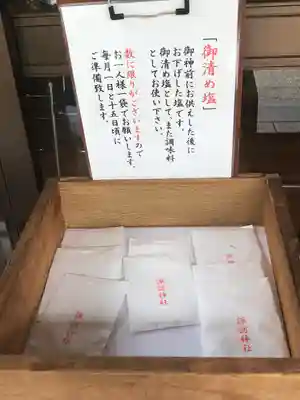 「御清め塩」
御神前にお供えした後に
お下げした塩です。
御清め塩として、また調味料
としてお使い下さい。
数に限りがございますので
お一人様一袋でお願いします。
毎月一日と十五日頃に
ご準備致します。
諏訪神社
諏訪神社
諏訪神社